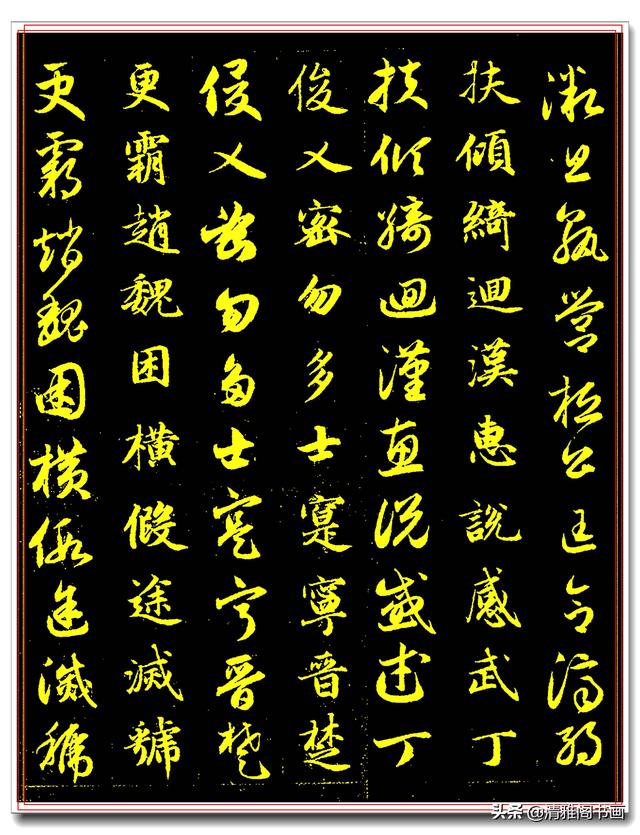 微旦孰營桓公匡合濟弱
扶傾綺迴漢惠說感武丁
扶傾綺迴漢惠說感武丁
俊乂密勿多士寔寧晉楚
俊乂密勿多士寔寧晉楚
更霸趙魏困橫假途滅虢
更霸趙魏困橫假途滅虢
头条 @清雅阁书画